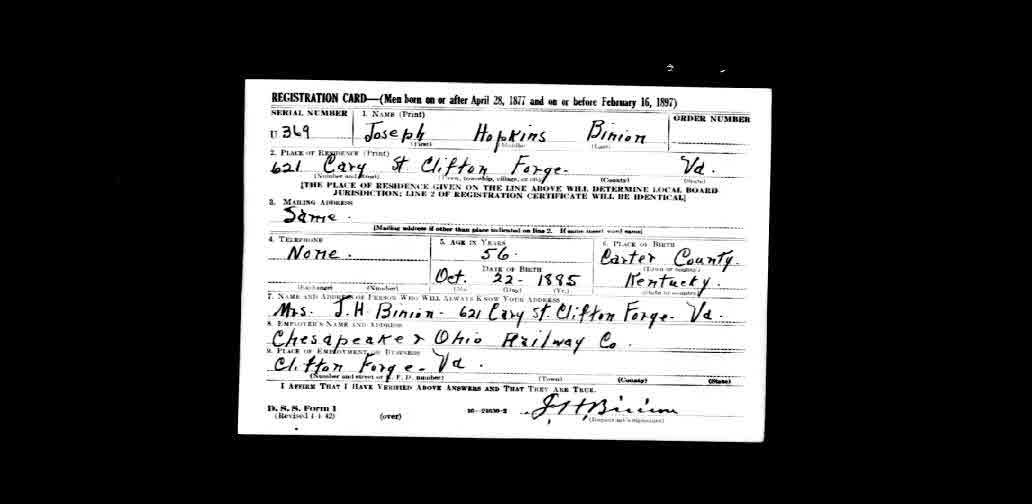 REGISTRATION CARD—(Men born on or after April 28, 1877 and on or before February 16, 1897)
SERIAL NUMBER 1. NAME (Print) ORDER NUMBER
U 369 Joseph Hopkins Binion
(First) (Middle) (Last)
2. PLACE OF RESIDENCE (Print)
621 Cary St. Clifton Forge- Va.
(Number and street) (Town, township, village, or city) (County) (State)
[THE PLACE OF RESIDENCE GIVEN ON THE LINE ABOVE WILL DETERMINE LOCAL BOARD
JURISDICTION; LINE 2 OF REGISTRATION CERTIFICATE WILL BE IDENTICAL]
3. MAILING ADDRESS
Same.
[Mailing address if other than place indicated on line 2. If same insert word same]
4. TELEPHONE 5. AGE IN YEARS 6. PLACE OF BIRTH
None. 56. Carter County.
DATE OF BIRTH (Town or county)
Oct. 22- 1885 Kentucky.
(Exchange) (Number) (Mo.) (Day) (Yr.) (State or country)
7. NAME AND ADDRESS OF PERSON WHO WILL ALWAYS KNOW YOUR ADDRESS
Mrs. J.H Binion- 621 Cary St. Clifton Forge- Va.
8. EMPLOYER'S NAME AND ADDRESS
Chesapeake & Ohio Railway Co.
9. PLACE OF EMPLOYMENT OR BUSINESS
Clifton Forge- Va.
(Number and street or R. F. D. number) (Town) (County) (State)
I AFFIRM THAT I HAVE VERIFIED ABOVE ANSWERS AND THAT THEY ARE TRUE.
D. S. S. Form 1
(Revised 4-1-42) (over) 16-21630-2 J H Binion
(Registrant's signature)